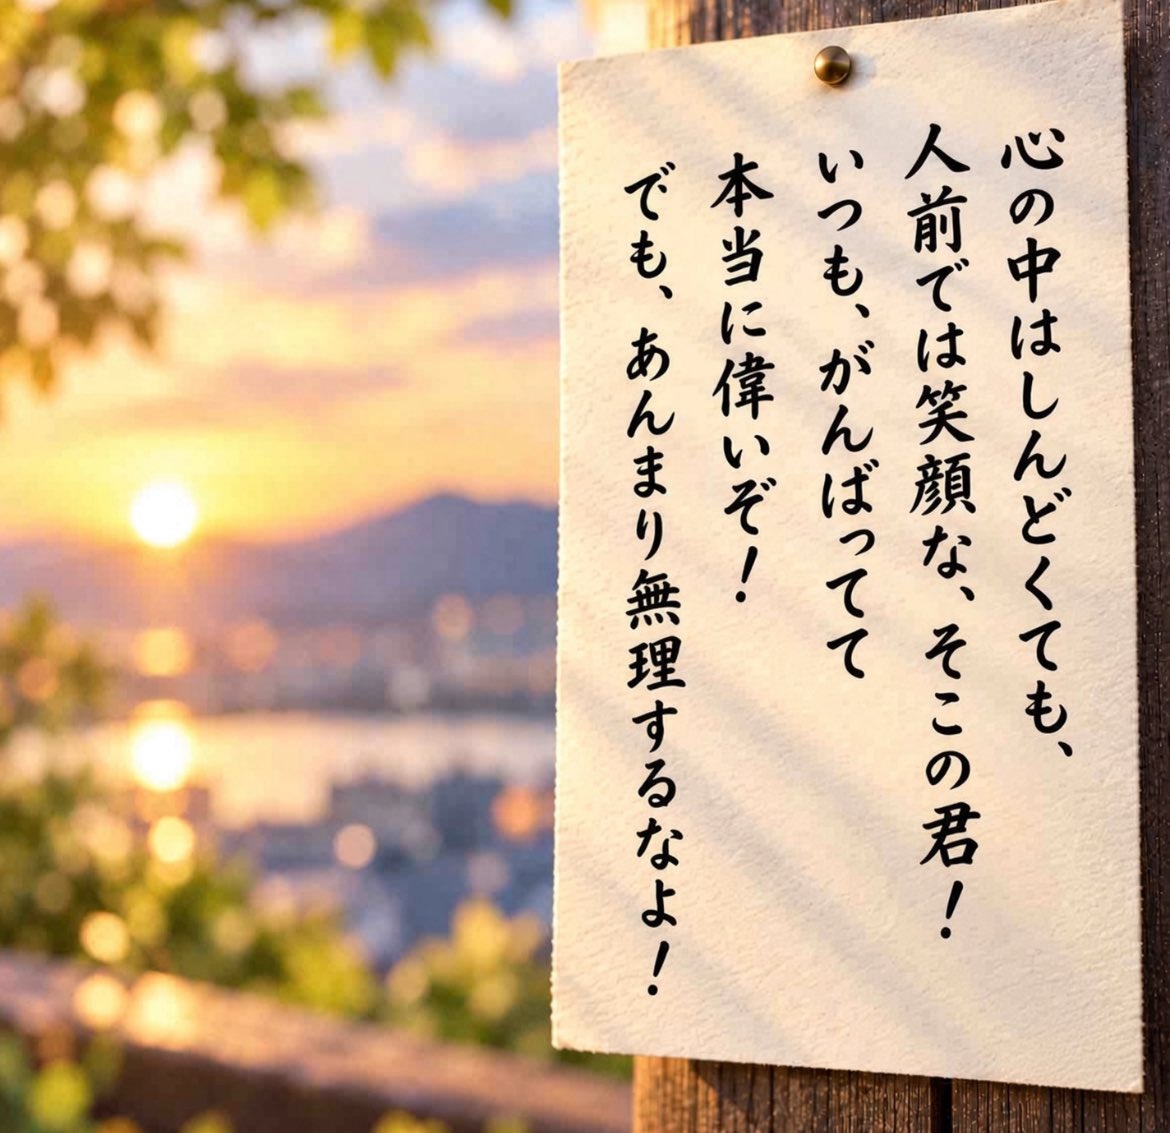 心の中はしんどくても、
人前では笑顔な、そこの君！
いつも、がんばってて
本当に偉いぞ！
でも、あんまり無理するなよ！